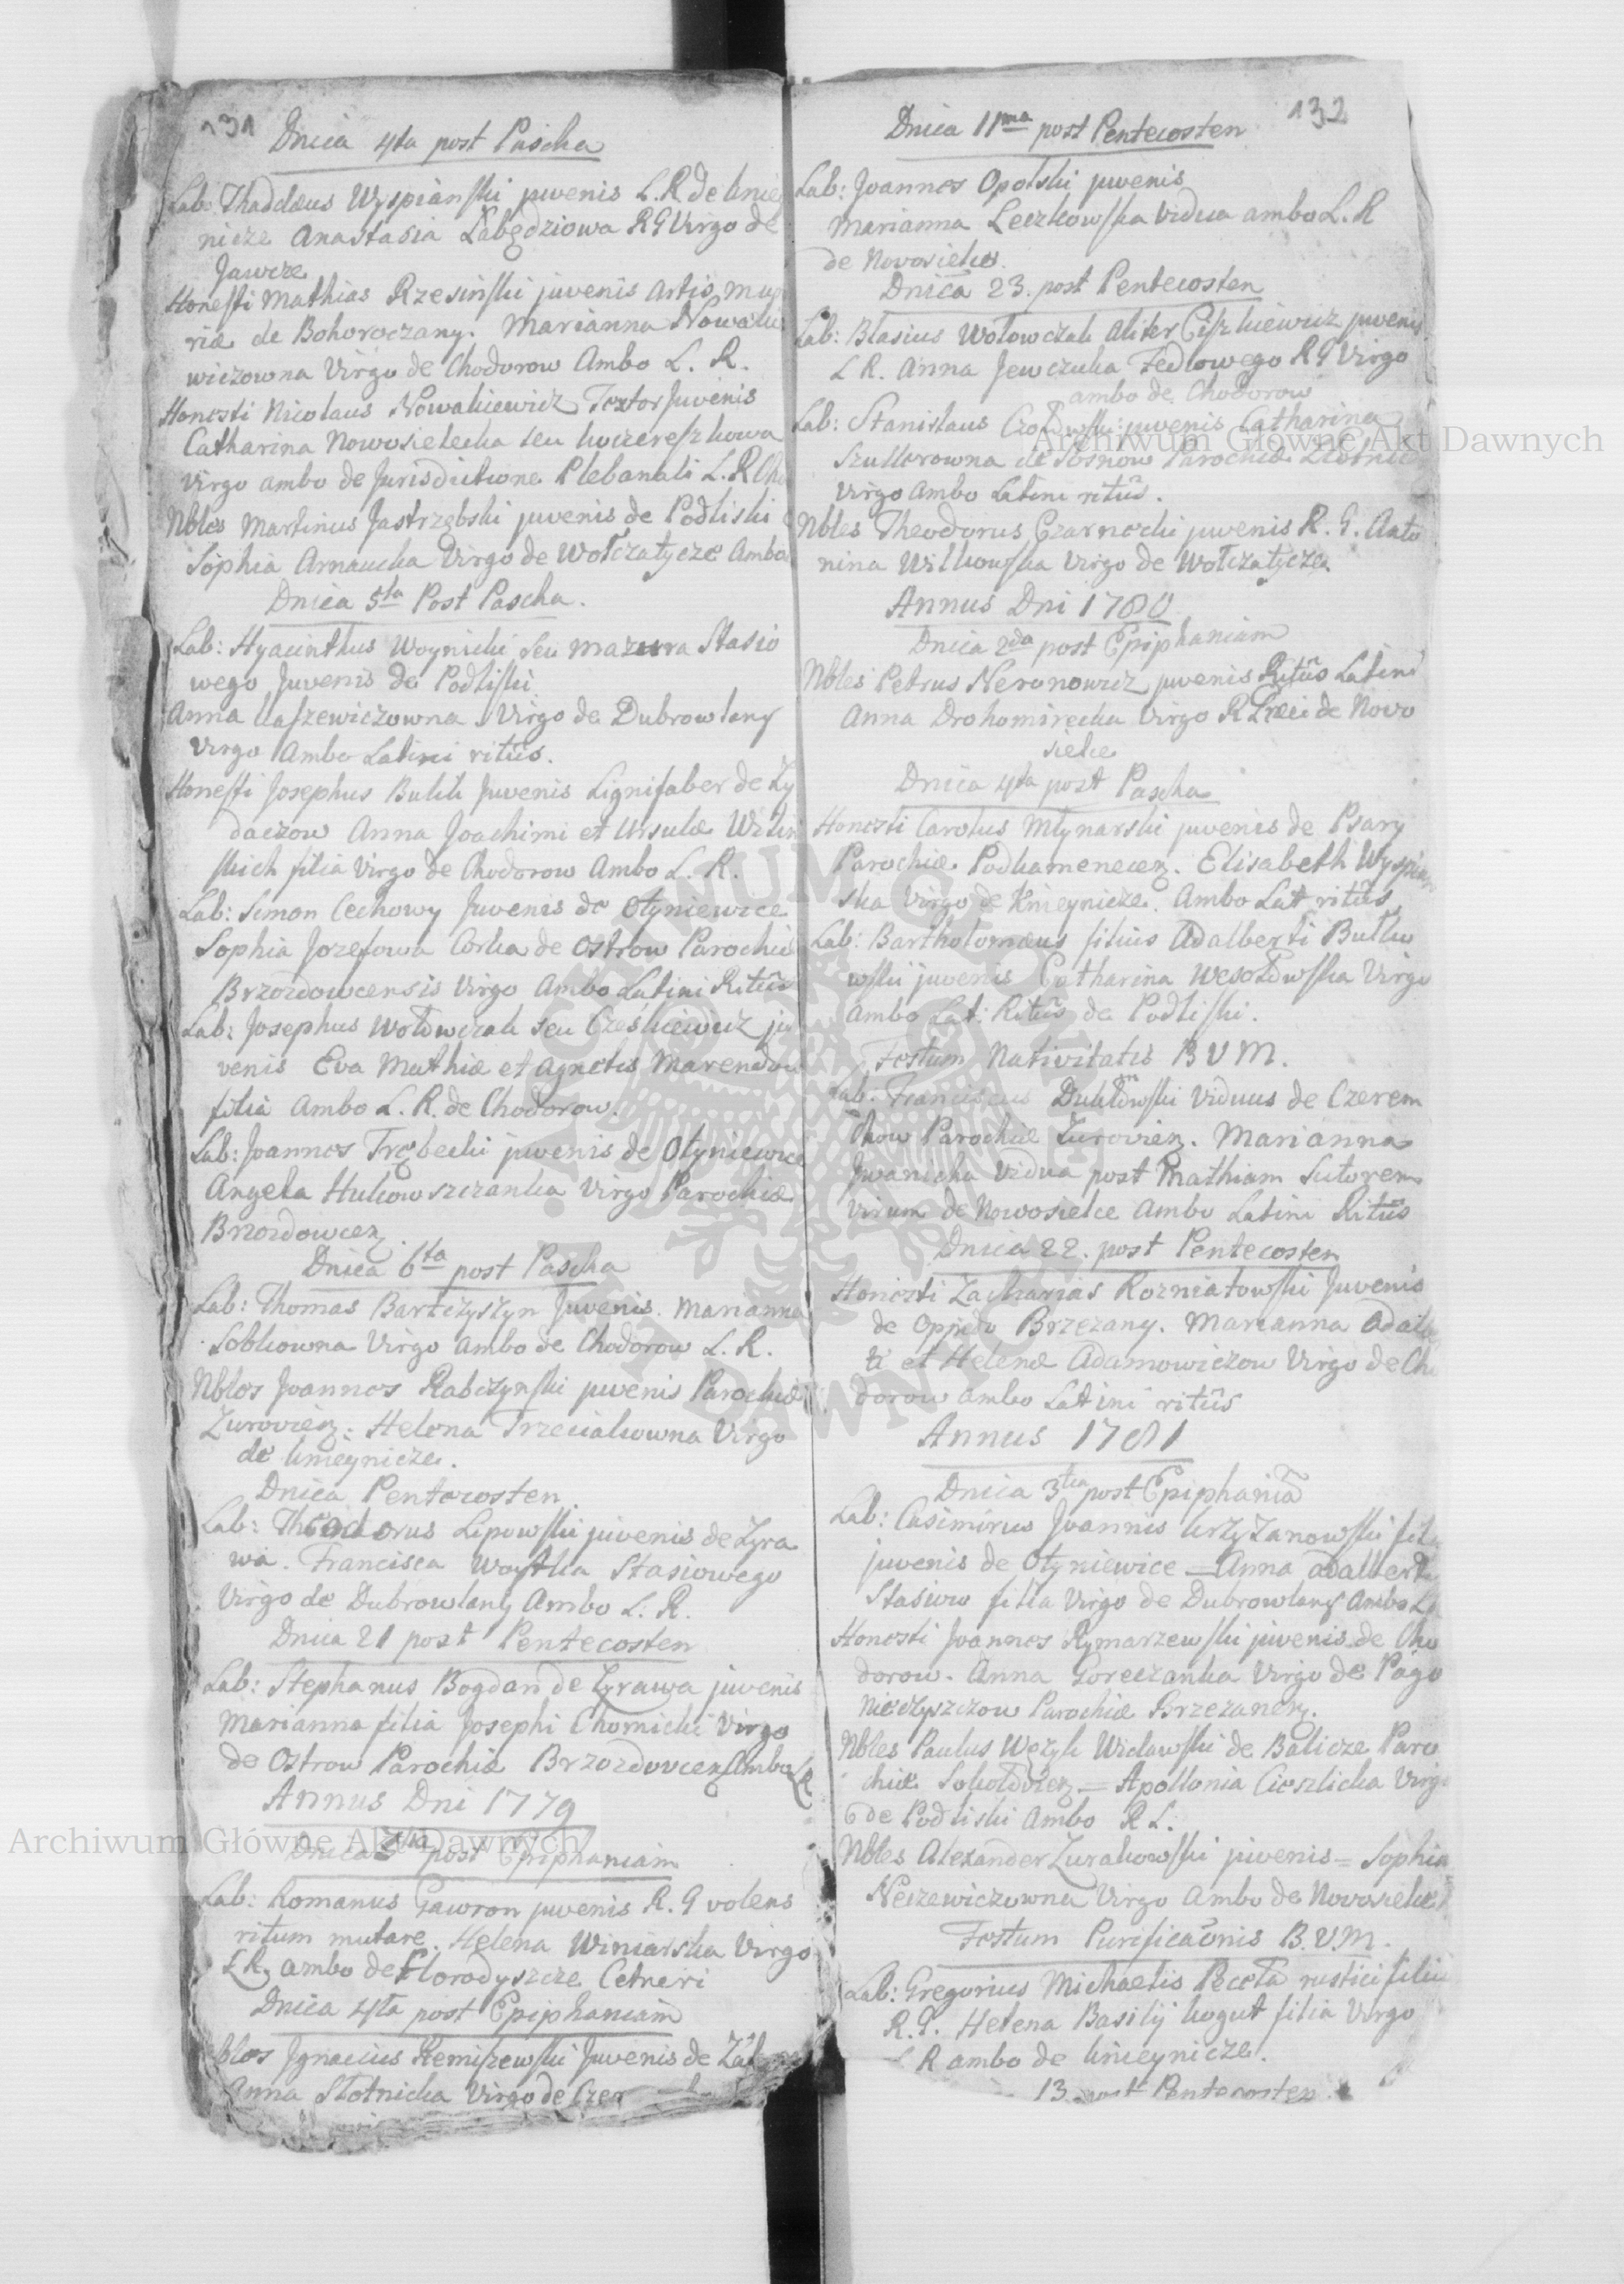 131
Dnica 4ta post Pascha
Lab: Thaddæus Wyspiański juvenis L. R. de Knie
nicze Anastasia Łabędziowa R G Virgo de
Jawcze
Honesti Mathias Rzesiński juvenis Artis
riæ de Bohoroczany. Marianna Nowaki
wiczowna Virgo de Chodorow Ambo L. R.
Honesti Nicolaus Nowakiewicz Textor Juvenis
Catharina Nowosielecka seu
Virgo ambo de Jurisdictione Plebanali L. R Cho
Nbles Martinus Jastrzębski juvenis de Podliski
Sophia Arnaucka Virgo de Wołczatycze Ambo
Dnica 5ta Post Pascha.
Lab: Hyacinthus Woynicki seu Mazura Stasio
wego Juvenis de Podliski
Anna Kaszewiczowna Virgo de Dubrowlany
Virgo Ambo Latini ritûs.
Honesti Josephus Bulik Juvenis Lignifaber de Zy
daczow Anna Joachimi et Ursulæ
skich filia Virgo de Chodorow Ambo L. R.
Lab: Simon Cechowy Juvenis de Otyniewice
Sophia Jozefowa Corka de Ostrow Parochiæ
Brzozdowcensis Virgo Ambo Latini Ritûs
Lab: Josephus Wołowczak seu ju
venis Eva Mathiæ et Agnetis
filia Ambo L. R. de Chodorow.
Lab: Joannes Trębecki juvenis de Otyniewice
Angela Hukowszczanka Virgo Parochiæ
Brzozdowcen.
Dnica 6ta post Pascha
Lab: Thomas Bartczyszyn Juvenis. Marianna
Sobkowna Virgo Ambo de Chodorow L. R.
Nbles Joannes Rabczyński juvenis Parochiæ
Zurovien: Helena Trzeciakowna Virgo
de Knieynicze.
Dnica Pentecosten
Lab: Theodorus Lipowski juvenis de Zyra
wa. Francisca Woytka Stasiowego
Virgo de Dubrowlany Ambo L. R.
Dnica 21 post Pentecosten
Lab: Stephanus Bogdan de Zyrawa juvenis
Marianna filia Josephi Chomicki Virgo
de Ostrow Parochiæ Brzozdovcen Ambo L R
Annus Dni 1779
Dnica post Epiphaniam
Lab: Romanus Gawron juvenis R. G volens
ritum mutare. Helena Winiarska Virgo
L R. ambo de Horodyszcze Cetneri
Dnica 4ta post Epiphaniam
Nbles Ignacius Remiszewski Juvenis de
Anna Słotnicka Virgo de
132
Dnica 11ma post Pentecosten
Lab: Joannes Opolski juvenis
Marianna Leczkowska Vidua ambo L. R
de Novosielce.
Dnica 23. post Pentecosten
Lab: Blasius Wołowczak aliter Ciszkiewicz juvenis
L R. Anna Jewczuka Fedkowego R G Virgo
ambo de Chodorow
Lab: Stanislaus juvenis Catharina
Szullerowna de Sosnow Parochiæ
Virgo Ambo Latini ritûs.
Nbles Theodorus Czarnecki juvenis R. G. Anto
nina Wilkowska Virgo de Wołczatycze.
Annus Dni 1780
Dnica 2da post Epiphaniam
Nbles Petrus Neronowicz juvenis Ritûs Latini
Anna Drohomirecka Virgo R Græci de Novo
sielce
Dnica 4ta post Pascha
Honesti Carolus Młynarski juvenis de Psary
Parochiæ Podkamenecen. Elisabeth Wyspian
ska Virgo de Knieynicze. Ambo Lat ritûs
Lab: Bartholomæus filius Adalberti Butko
wski juvenis Catharina Wesołowska Virgo
Ambo Lat: Ritûs de Podliski.
Festum Nativitatis B V M.
Lab: Franciscus viduus de Czerem
chow Parochiæ Zurovien. Marianna
Iwanicka Vidua post Mathiam Sutorem
virum de Nowosielce Ambo Latini Ritûs
Dnica 22. post Pentecosten
Honesti Zacharias Rozniatowski Juvenis
de Oppido Brzezany. Marianna Adalb
ti et Helenæ Adamowiczow Virgo de Cho
dorow Ambo Latini ritûs
Annus 1781
Dnica 3tia post Epiphania
Lab: Casimirus Joannis Krzyzanowski filiu
juvenis de Otyniewice = Anna Adalberti
Stasiow filia Virgo de Dubrowlany Ambo L
Honesti Joannes Rymarzewski juvenis de Cho
dorow. Anna Goreczanka Virgo de Pago
Parochiæ Brzezanen.
Nbles Paulus Węzyk Widawski de Balicze Paro
chiæ Sokołovien = Apollonia Cieszlicka Virgo
de Podliski Ambo R L.
Nbles Alexander Zurakowski juvenis = Sophia
Neczewiczowna Virgo Ambo de Novosielce
Festum Purificaonis B. V. M.
Lab: Gregorius Michaelis Peceta rustici filiu
R. G. Helena Basilij Kogut filia Virgo
L R ambo de Knieynicze.
13. post Pentecosten
Archiwum Główne Akt Dawnych
Archiwum Główne Akt Dawnych
ARCHIWUM GŁÓWNE AKT DAWNYCH